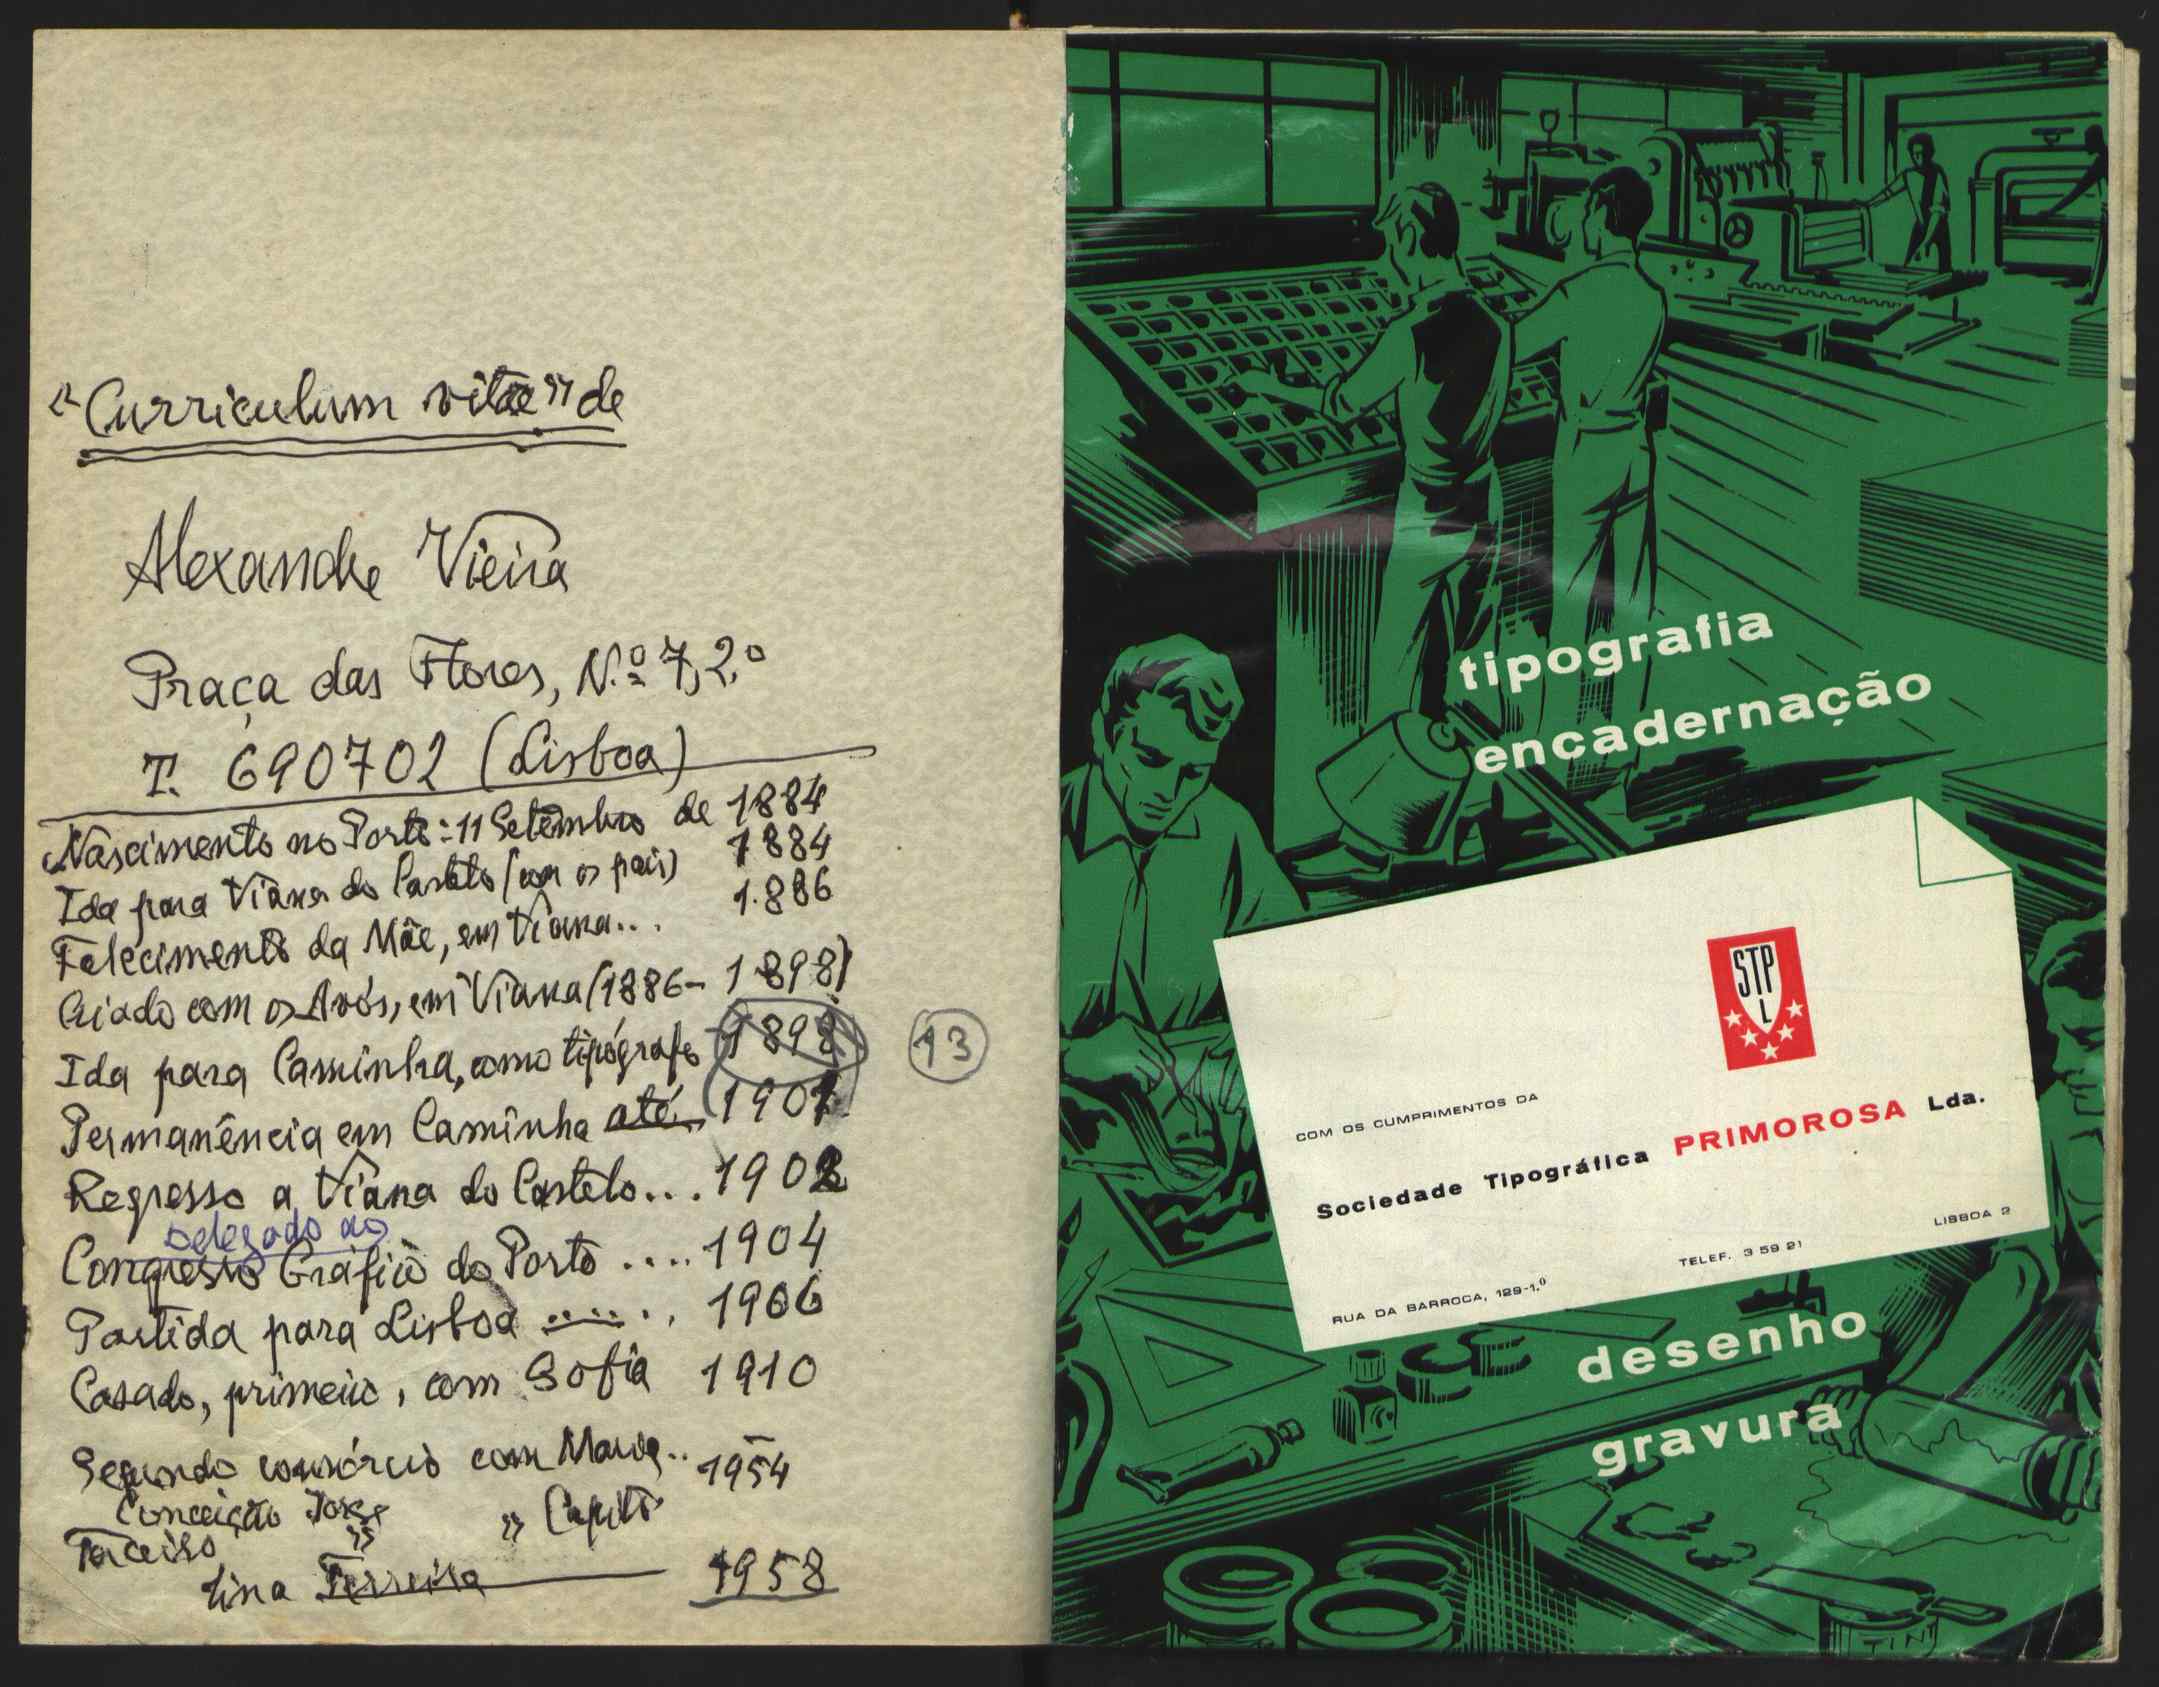 "Curriculum vitae" de
Alexandre Vieira
Praça das Flores, N.º 7, 2.º
T. 690702 (Lisboa)
Nascimento no Porto: 11 Setembro de 1884
Ida para Viana do Castelo (com os pais) 1884
Falecimento da Mãe, em Viana... 1.886
Criado com os Avós, em Viana (1886-1898)
Ida para Caminha, como tipógrafo 1898
13
Permanência em Caminha até 1901
Regresso a Viana do Castelo... 1902
Delegado ao
Congresso Gráfico do Porto .... 1904
Partida para Lisboa ....... 1906
Casado, primeiro, com Sofia 1910
Segundo consórcio com Maria.. 1954
Conceição Jorge
Terceiro " " Capitó
Lina Ferreira 1958
tipografia
encadernação
STP
L
COM OS CUMPRIMENTOS DA
Sociedade Tipográfica PRIMOROSA Lda.
RUA DA BARROCA, 129-1.º TELEF. 3 59 21 LISBOA 2
desenho
gravura
TINT